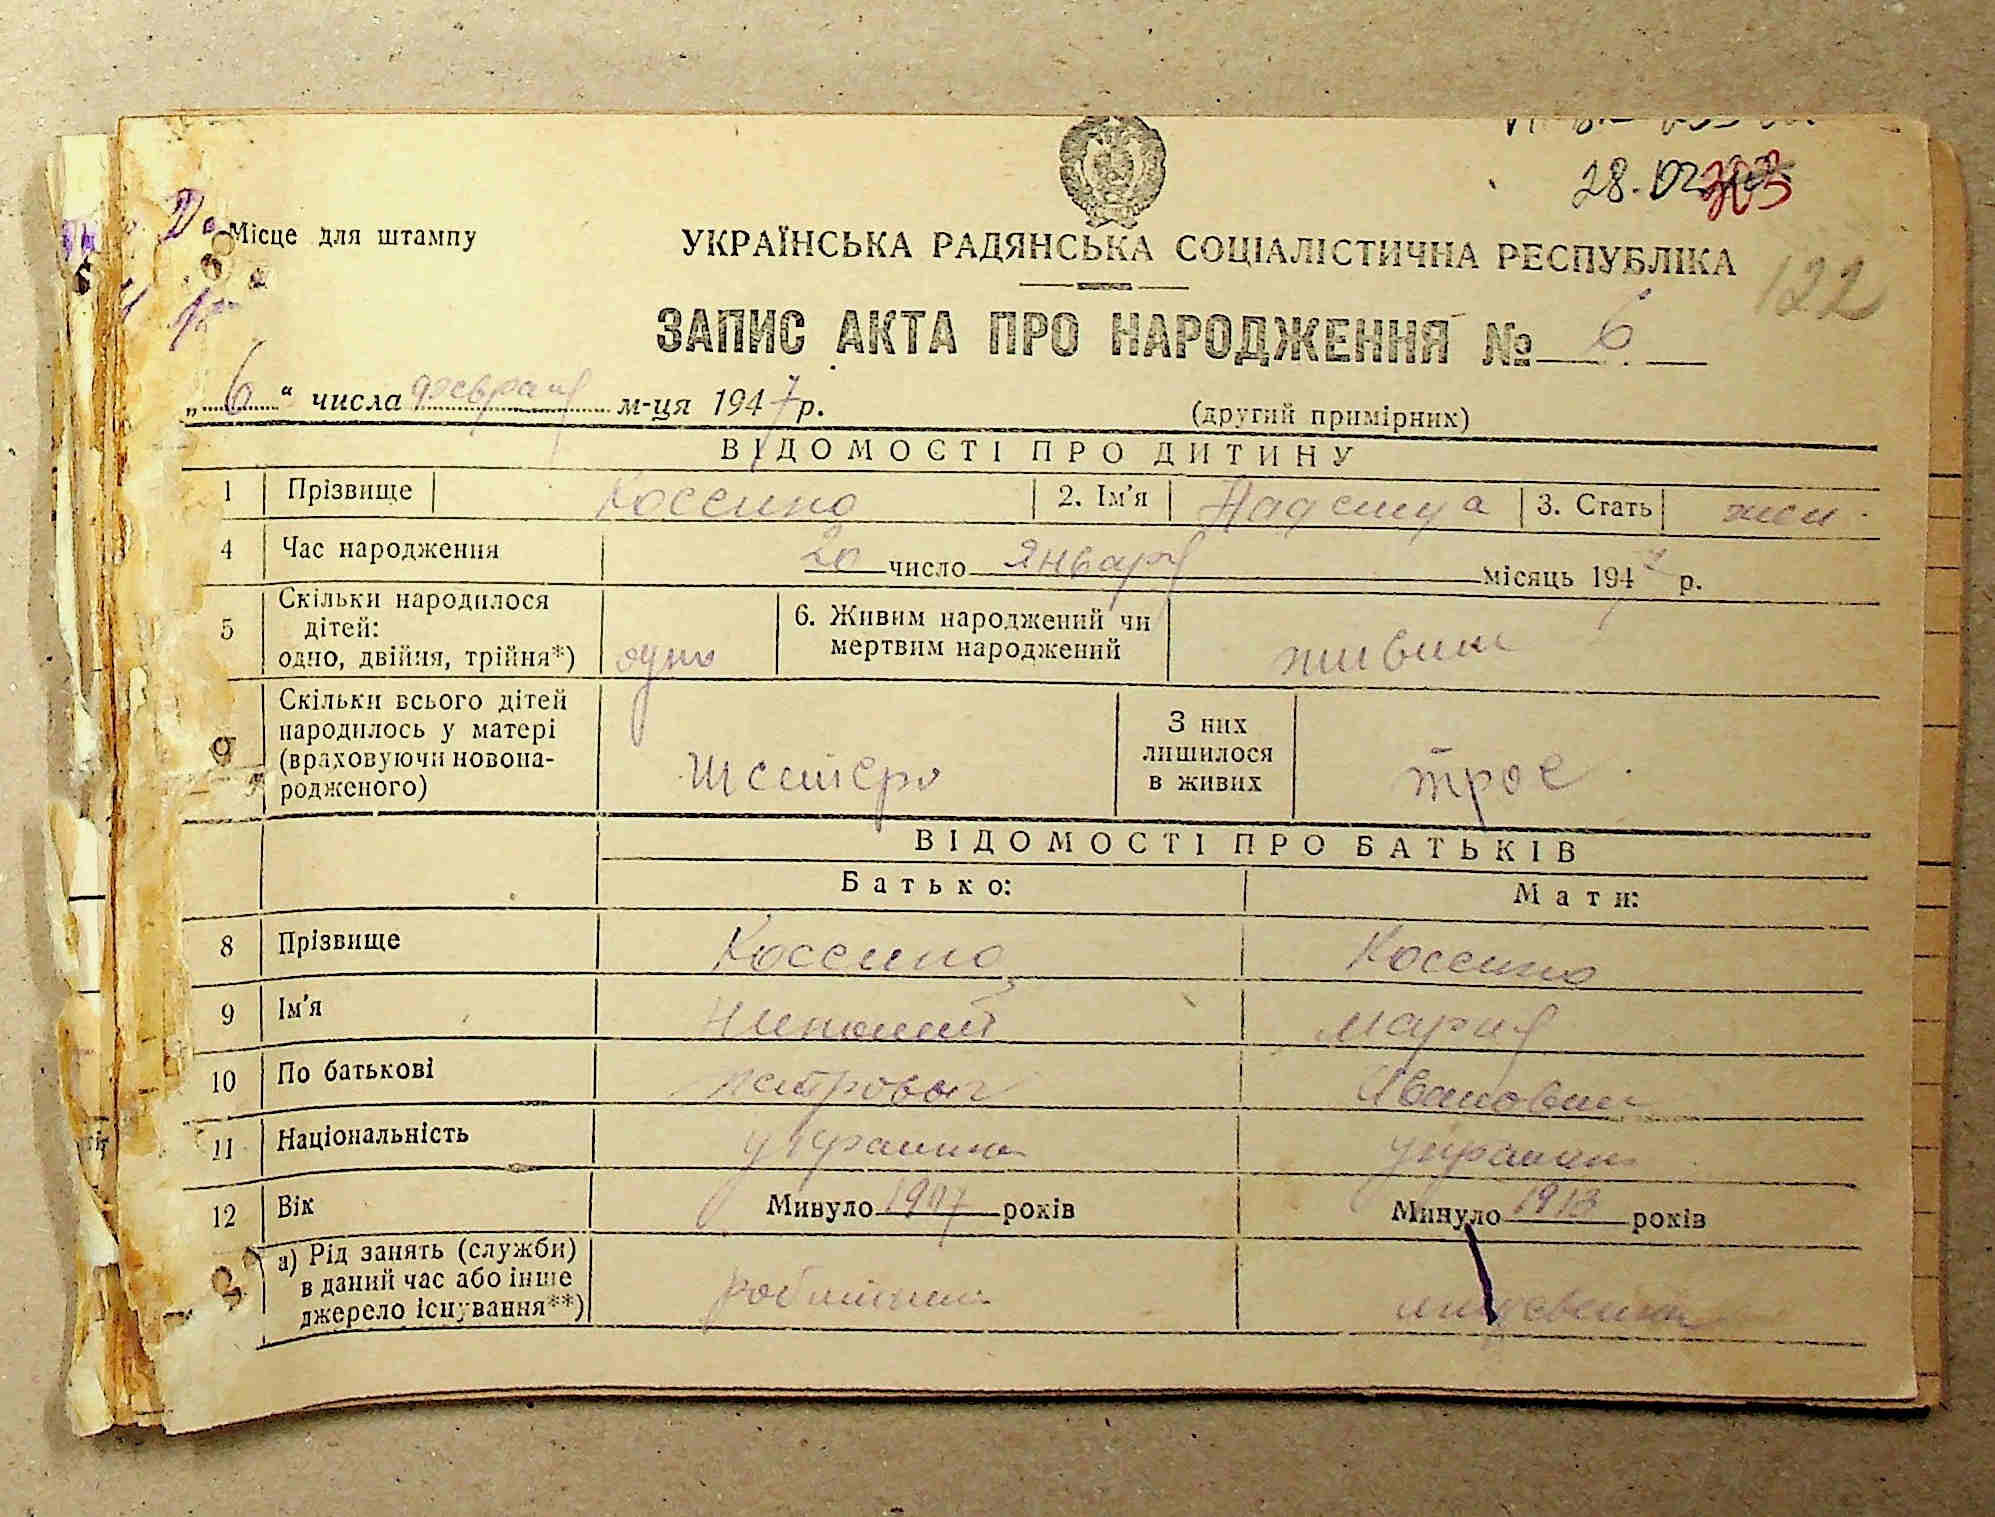 28.02
303
Місце для штампу
УКРАЇНСЬКА РАДЯНСЬКА СОЦІАЛІСТИЧНА РЕСПУБЛІКА
122
ЗАПИС АКТА ПРО НАРОДЖЕННЯ № 6
„6“ числа февраля м-ця 1947 р.
(другий примірних)
ВІДОМОСТІ ПРО ДИТИНУ
1 Прізвище Коссипо 2. Ім'я Надежда 3. Стать жен.
4 Час народження 20 число января місяць 1947 р.
5 Скільки народилося дітей: одно, двійня, трійня*) одно 6. Живим народжений чи мертвим народжений живым
Скільки всього дітей народилось у матері (враховуючи новонародженого) шестеро З них лишилося в живих трое
ВІДОМОСТІ ПРО БАТЬКІВ
Батько: Мати:
8 Прізвище
9 Ім'я Мария
10 По батькові Петрович Ивановна
11 Національність украинец украинка
12 Вік Минуло 1907 років Минуло 1913 років
а) Рід занять (служби) в даний час або інше джерело існування**)